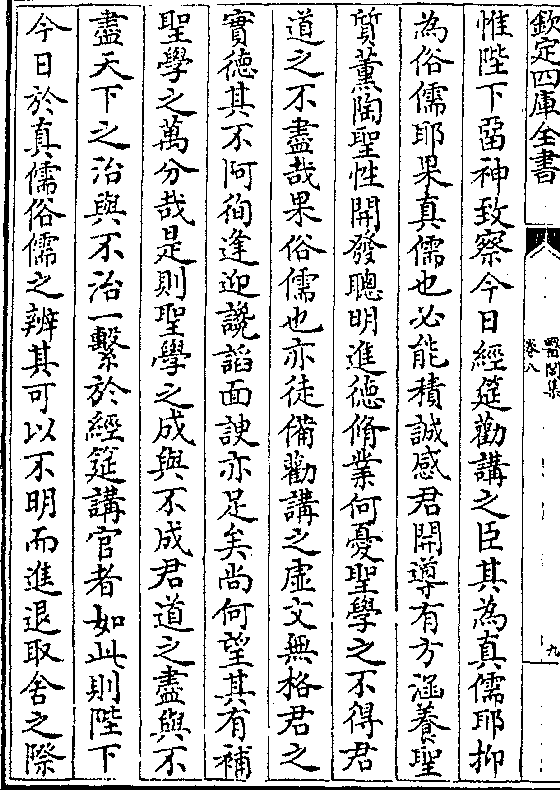 欽定四庫全書
醫閭集
卷八
九
惟陛下留神致察今日經筵勸講之臣其為真儒耶抑
為俗儒耶果真儒也必能積誠感君開導有方涵養聖
質薰陶聖性開發聰明進德脩業何憂聖學之不得君
道之不盡哉果俗儒也亦徒備勸講之虛文無格君之
實德其不阿徇逢迎讒謟面諛亦足矣尚何望其有補
聖學之萬分哉是則聖學之成與不成君道之盡與不
盡天下之治與不治一繫於經筵講官者如此則陛下
今日於真儒俗儒之辨其可以不明而進退取舍之際